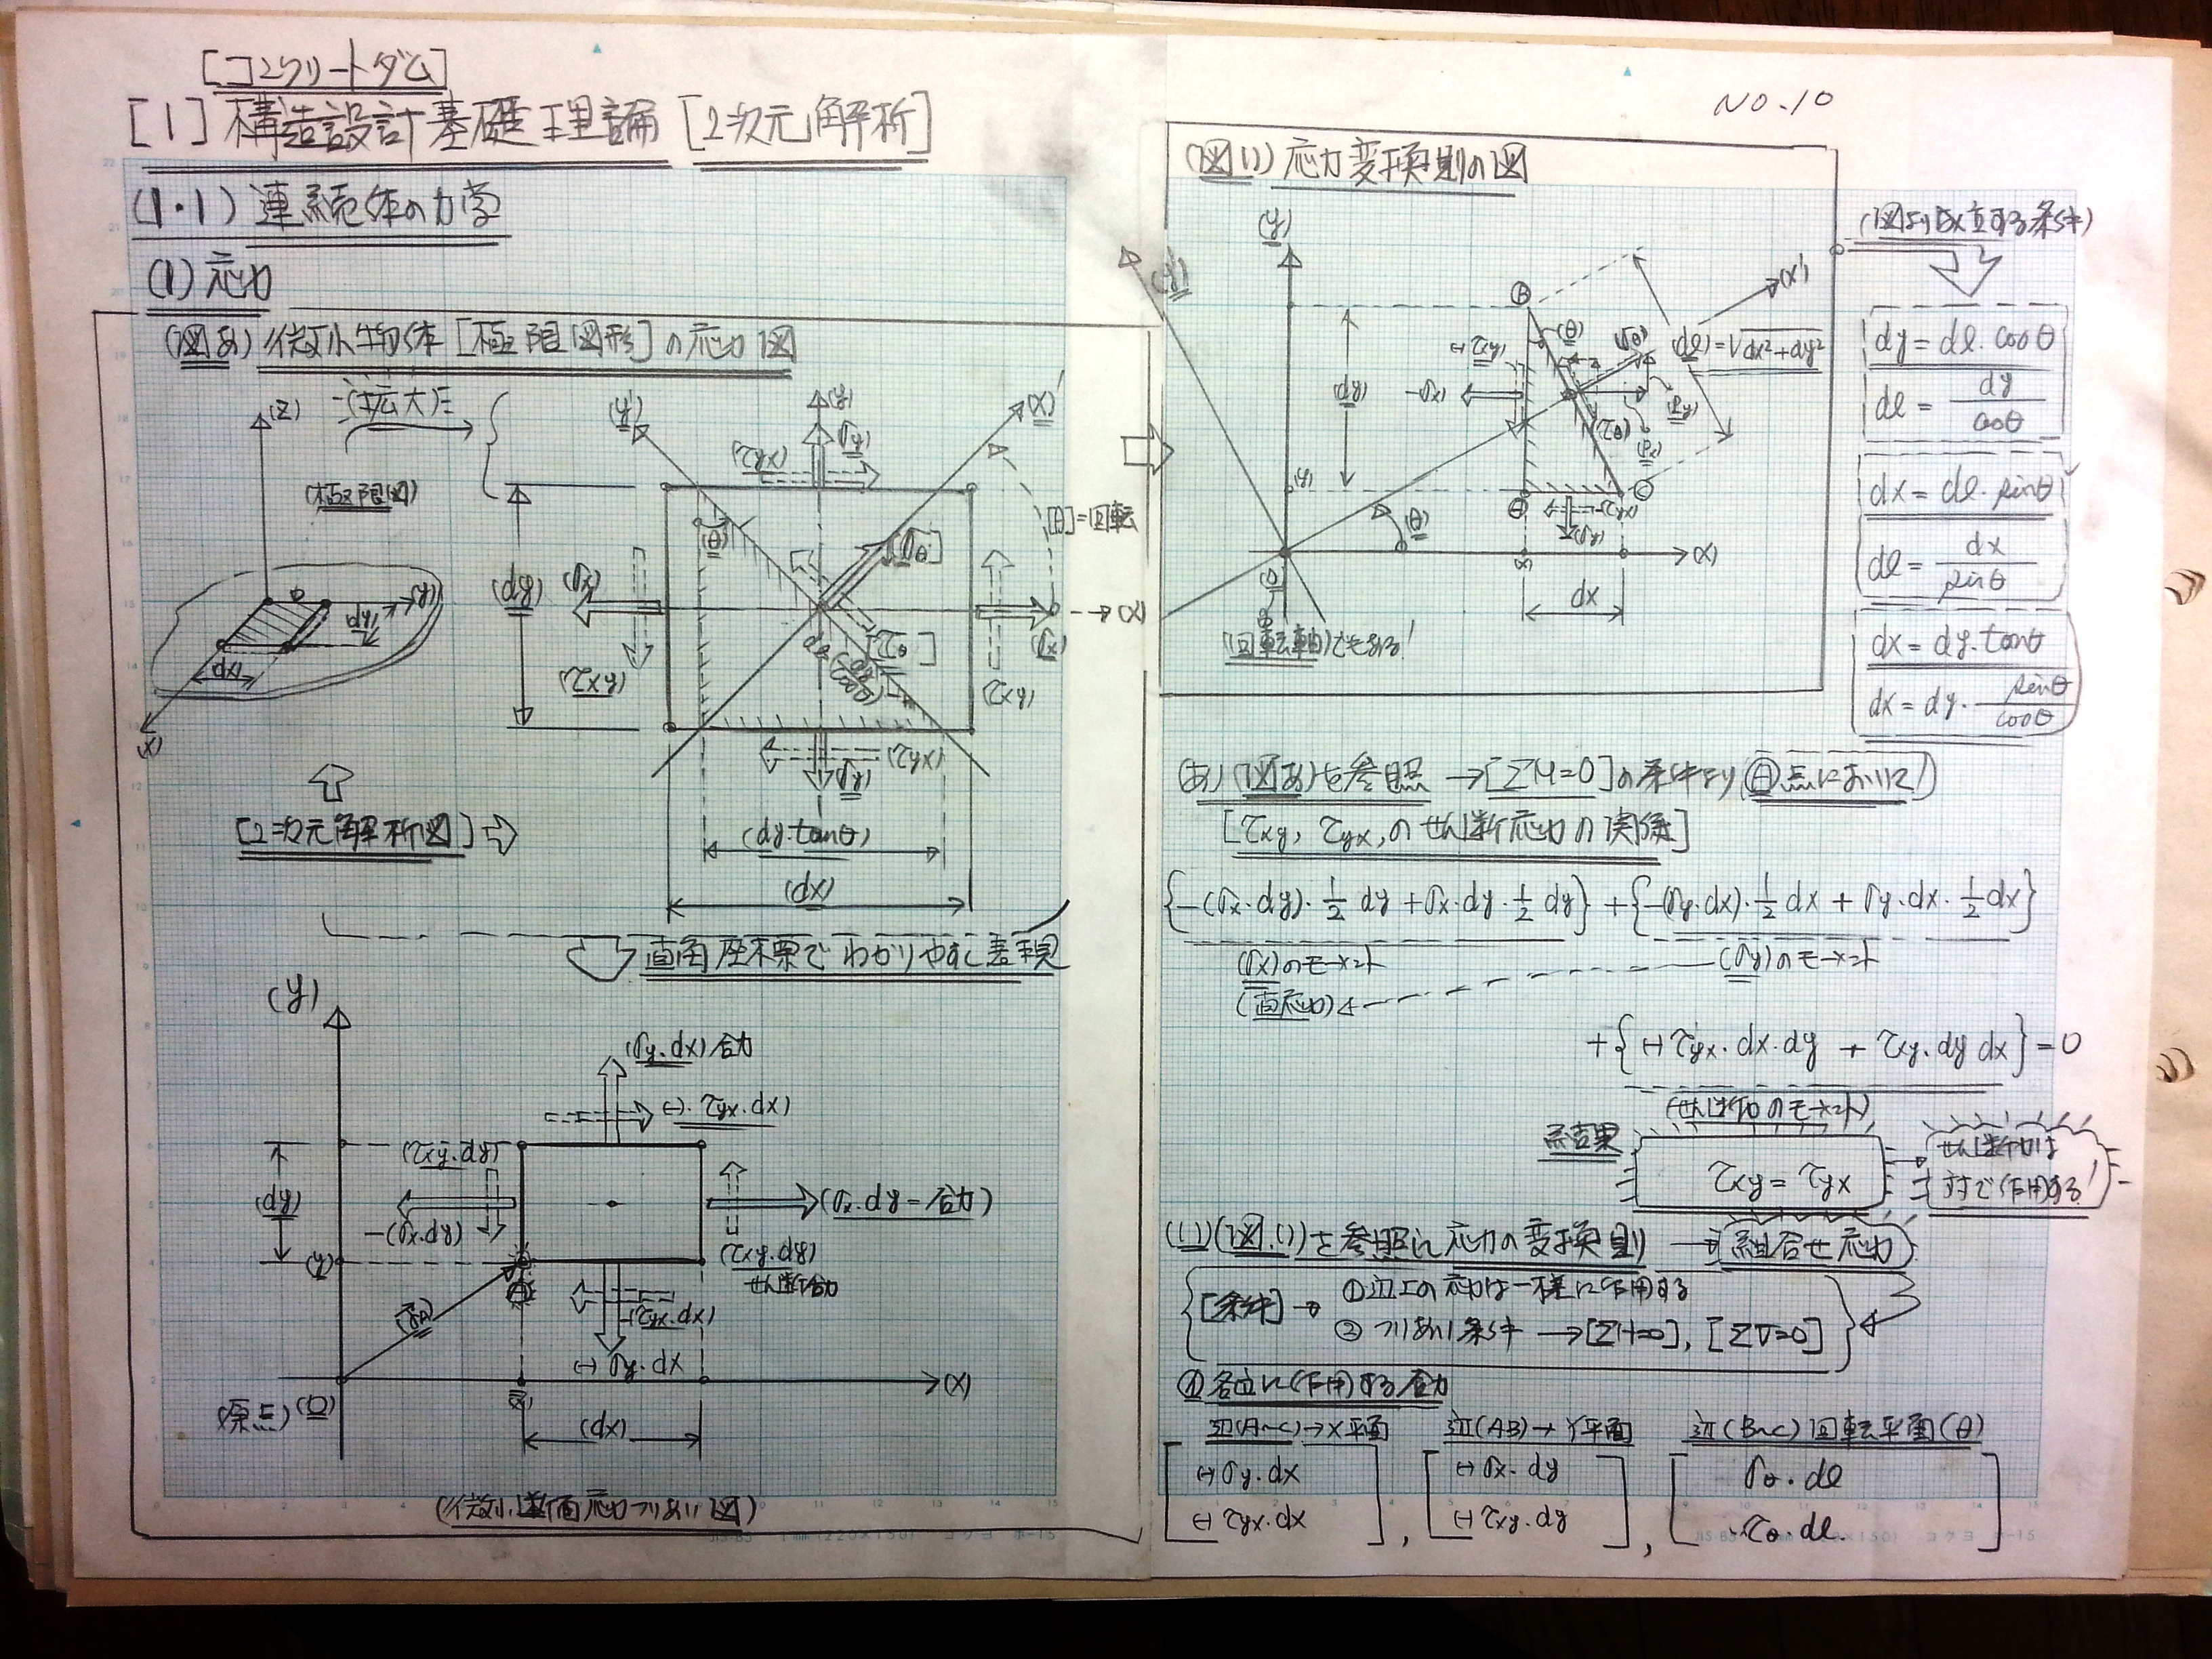 [コンクリートダム]
[1] 構造設計基礎理論 [2次元解析]
(1・1) 連続体の力学
(1) 応力
(図あ) 微小物体 [極限図形] の応力図
(拡大)
(Z)
(極限図)
(y)
dy
dx
(X)
(y')
(y)
(X')
(τyx)
(σy)
[θ]=回転
(θ)
[σθ]
(dy)
(σx)
(X)
(σx)
[τθ]
(τxy)
(τxy)
(τyx)
(σy)
[2次元解析図]
(dy・tanθ)
(dx)
直角座標でわかりやすく表現
(y)
(σy・dx)合力
(-)・τyx・dx)
(τxy・dy)
(dy)
-(σx・dy)
(σx・dy=合力)
(y)
(τxy・dy)
せん断合力
-(τyx・dx)
(-)σy・dx
(X)
(原点)(O)
(dx)
(微小断面応力つりあい図)
NO.10
(図い) 応力変換則の図
(y)
(y')
(X')
B
(θ)
(σθ)
(dl)=√dx²+dy²
(-)τxy
-(σx)
(dy)
(τθ)
(y)
A
C
(θ)
(σy)
(X)
dx
(回転軸)でもある!
(図より成立する条件)
dy = dl・cosθ
dl = dy/cosθ
dx = dl・sinθ
dl = dx/sinθ
dx = dy・tanθ
dx = dy・sinθ/cosθ
(あ) (図あ)を参照 →[ΣM=0]の条件より(A点において)
[τxy, τyx,のせん断応力の関係]
{-(σx・dy)・1/2 dy + σx・dy・1/2 dy} + {-(σy・dx)・1/2 dx + σy・dx・1/2 dx}
(σx)のモーメント
(σy)のモーメント
(直応力)
+{(-)τyx・dx・dy + τxy・dy dx} = 0
(せん断力のモーメント)
結果
τxy = τyx
せん断力は
対で作用する!
(い)(図い)を参照に応力の変換則 → 組合せ応力
[条件]→ ①辺上の応力は一様に作用する
② つりあい条件 →[ΣH=0], [ΣV=0]
①各辺に作用する合力
辺(A~C)→X平面
辺(AB)→Y平面
辺(B~C)回転平面(θ)
(-)σy・dx
(-)σx・dy
σθ・dl
(-)τyx・dx
(-)τxy・dy
τθ・dl